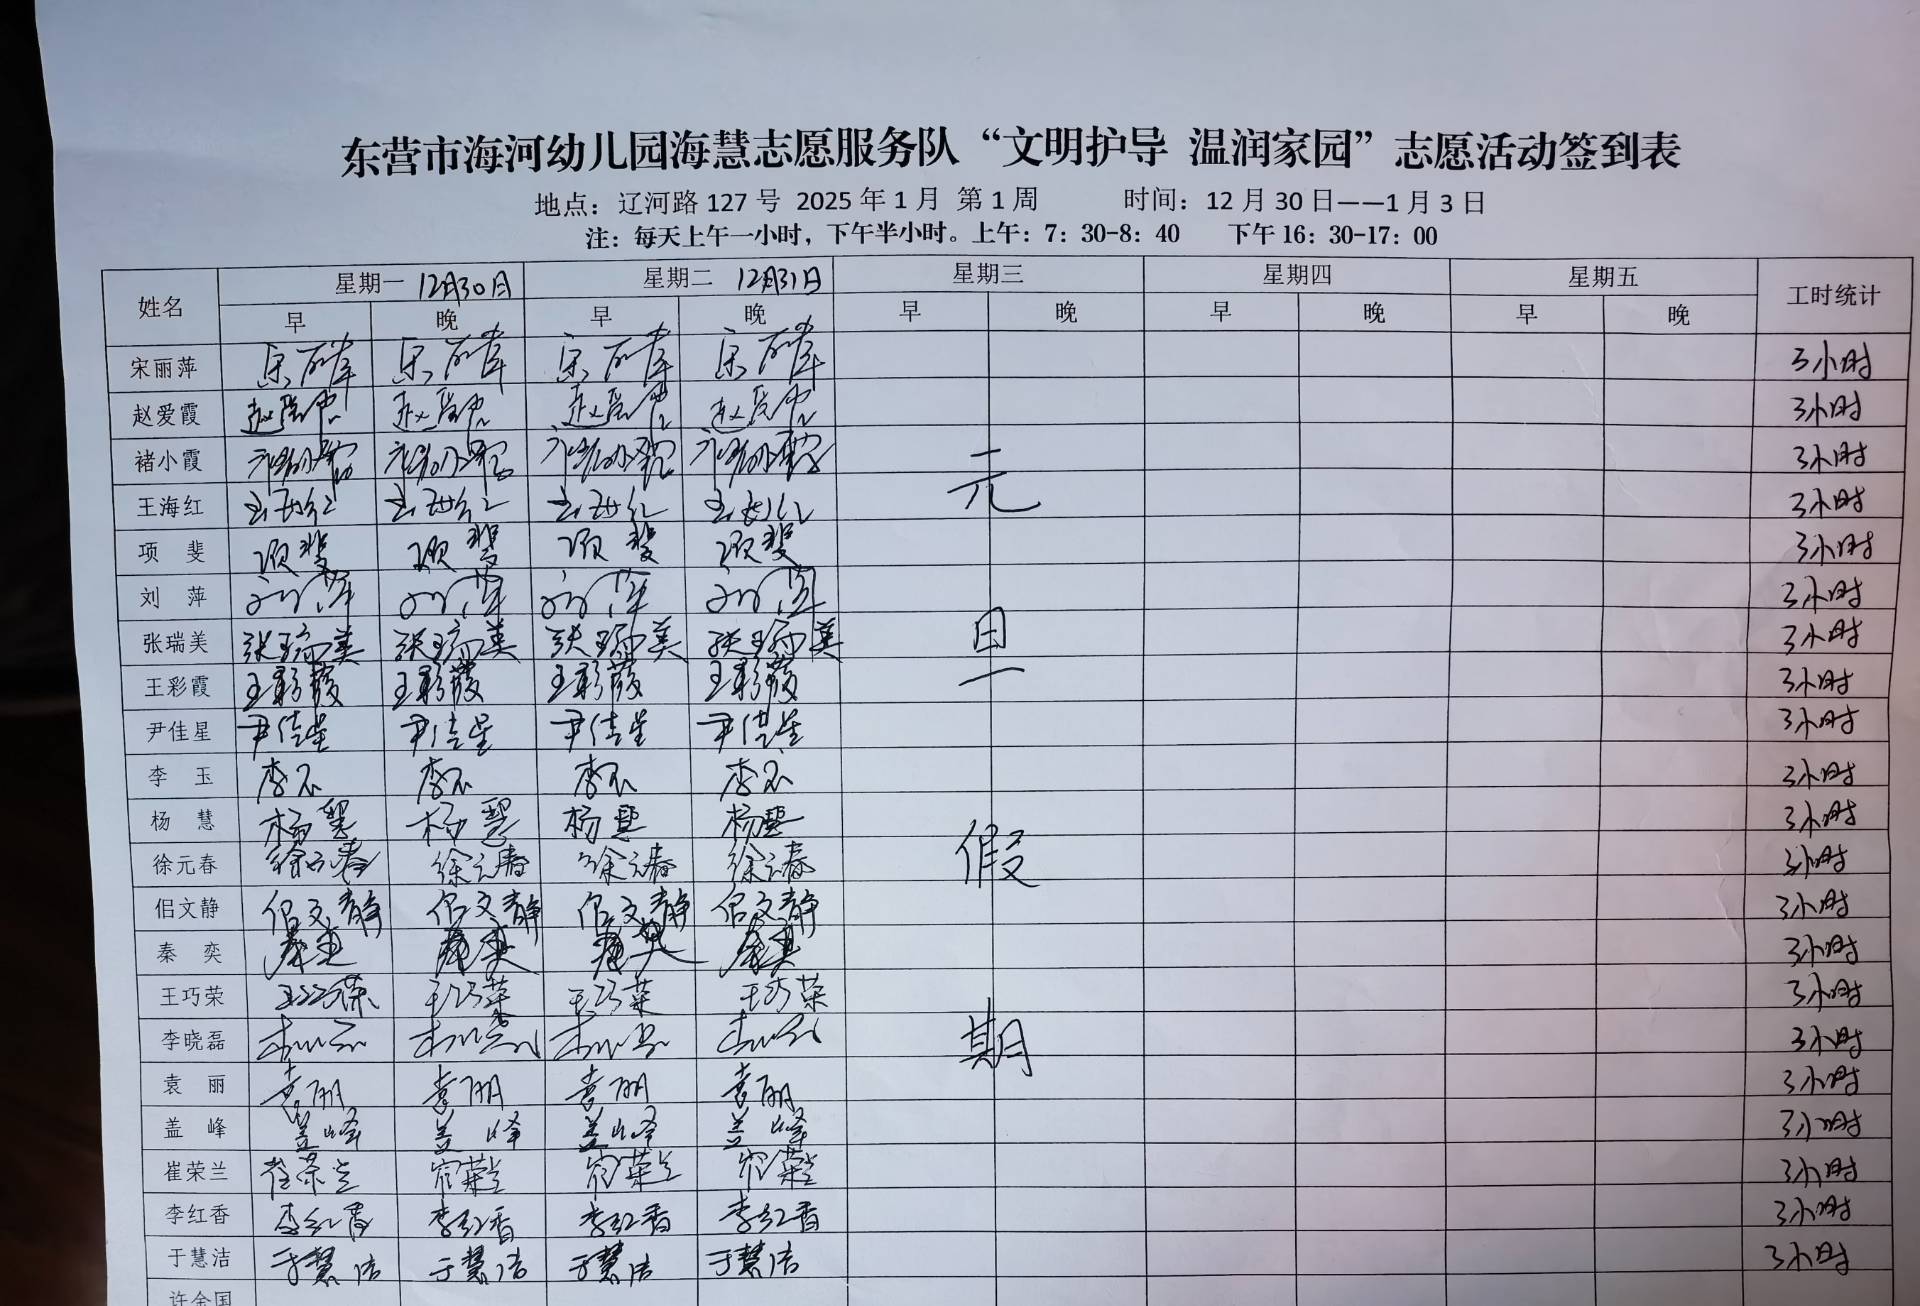 东营市海河幼儿园海慧志愿服务队“文明护导 温润家园”志愿活动签到表
地点：辽河路 127 号 2025 年 1 月 第 1 周 时间：12 月 30 日——1 月 3 日
注：每天上午一小时，下午半小时。上午：7：30-8：40 下午 16：30-17：00
姓名 星期一 12月30日 星期二 12月31日 星期三 星期四 星期五 工时统计
早 晚 早 晚 早 晚 早 晚 早 晚
宋丽萍 宋丽萍 宋丽萍 宋丽萍 宋丽萍 3小时
赵爱霞 赵爱霞 赵爱霞 赵爱霞 赵爱霞 3小时
褚小霞 褚小霞 褚小霞 褚小霞 褚小霞 3小时
王海红 王海红 王海红 王海红 王海红 元 3小时
项 斐 项斐 项斐 项斐 项斐 3小时
刘 萍 刘萍 刘萍 刘萍 刘萍 3小时
张瑞美 张瑞美 张瑞美 张瑞美 张瑞美 旦 3小时
王彩霞 王彩霞 王彩霞 王彩霞 王彩霞 3小时
尹佳星 尹佳星 尹佳星 尹佳星 尹佳星 3小时
李 玉 李玉 李玉 李玉 李玉 3小时
杨 慧 杨慧 杨慧 杨慧 杨慧 3小时
徐元春 徐元春 徐元春 徐元春 徐元春 假 3小时
佀文静 佀文静 佀文静 佀文静 佀文静 3小时
秦 奕 秦奕 秦奕 秦奕 秦奕 3小时
王巧荣 王巧荣 王巧荣 王巧荣 王巧荣 3小时
李晓磊 李晓磊 李晓磊 李晓磊 李晓磊 期 3小时
袁 丽 袁丽 袁丽 袁丽 袁丽 3小时
盖 峰 盖峰 盖峰 盖峰 盖峰 3小时
崔荣兰 崔荣兰 崔荣兰 崔荣兰 崔荣兰 3小时
李红香 李红香 李红香 李红香 李红香 3小时
于慧洁 于慧洁 于慧洁 于慧洁 于慧洁 3小时
许金国